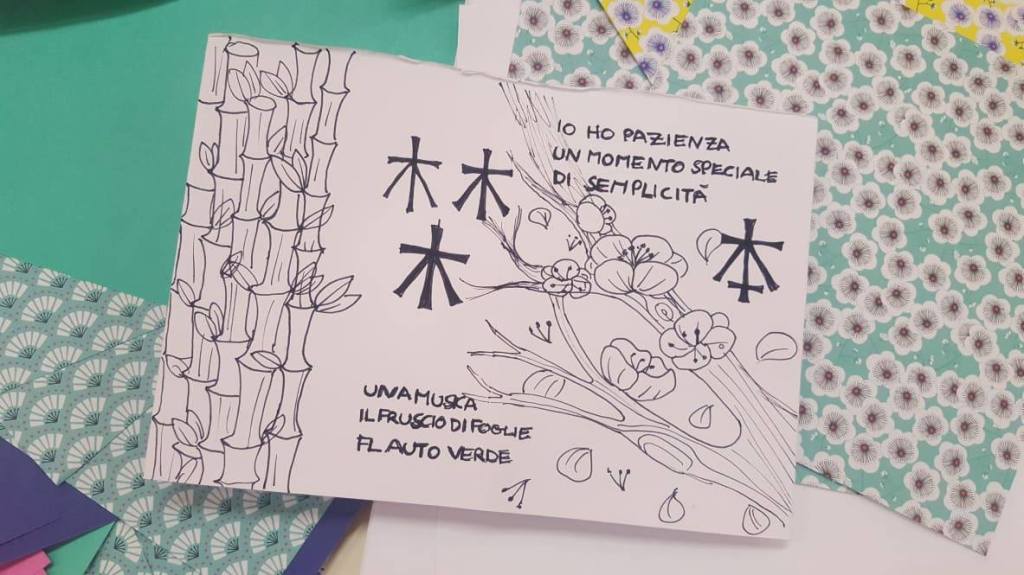 木木
木
本
IO HO PAZIENZA
UN MOMENTO SPECIALE
DI SEMPLICITÀ
UNA MUSICA
IL FRUSCIO DI FOGLIE
FLAUTO VERDE